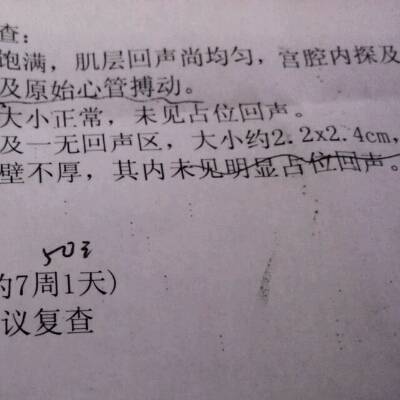 查：
饱满，肌层回声尚均匀，宫腔内探及
及原始心管搏动。
大小正常，未见占位回声。
及一无回声区，大小约2.2x2.4cm，
壁不厚，其内未见明显占位回声。
50天
约7周1天)
议复查